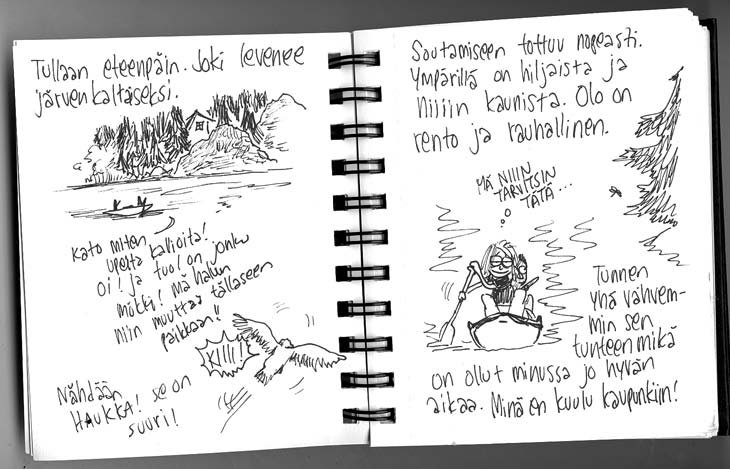 Tullaan eteenpäin. Joki levenee
järvenkaltaiseksi.
Kato miten
upeita kallioita!
Oi! Ja tuol on jonku
mökki! Mä haluun
niin muuttaa tällaseen
paikkaan!!
KIII!
Nähdään
HAUKKA! Se on
suuri!
Soutamiseen tottuu nopeasti.
Ympärillä on hiljaista ja
Niiiin kaunista. Olo on
rento ja rauhallinen.
MÄ NIIIN
TARVITSIN
TÄTÄ...
Tunnen
yhä vahvem-
min sen
tunteen mikä
on ollut minussa jo hyvän
aikaa. Minä en kuulu kaupunkiin!